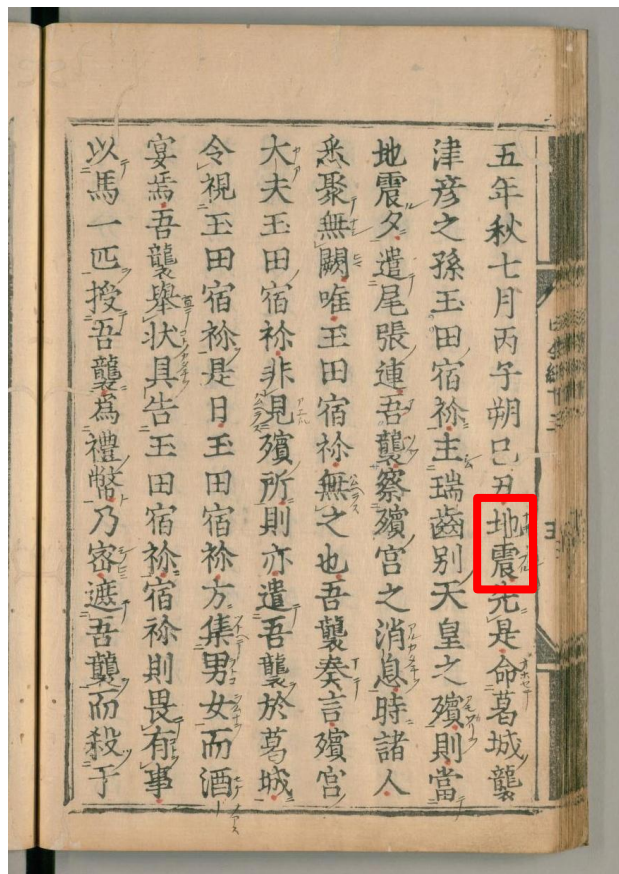 五年秋七月丙午朔己丑地震先是命葛城襲
津彦之孫玉田宿祢主瑞齒別天皇之殯則當
地震夕遣尾張連吾襲察殯宮之消息時諸人
悉聚無闕唯玉田宿祢無之也吾襲奏言殯宮
大夫玉田宿祢非見殯所則亦遣吾襲於葛城
令視玉田宿祢是日玉田宿祢方集男女而酒
宴焉吾襲舉状具告玉田宿祢宿祢則畏有事
以馬一匹授吾襲為禮幣乃密遮吾襲而殺于